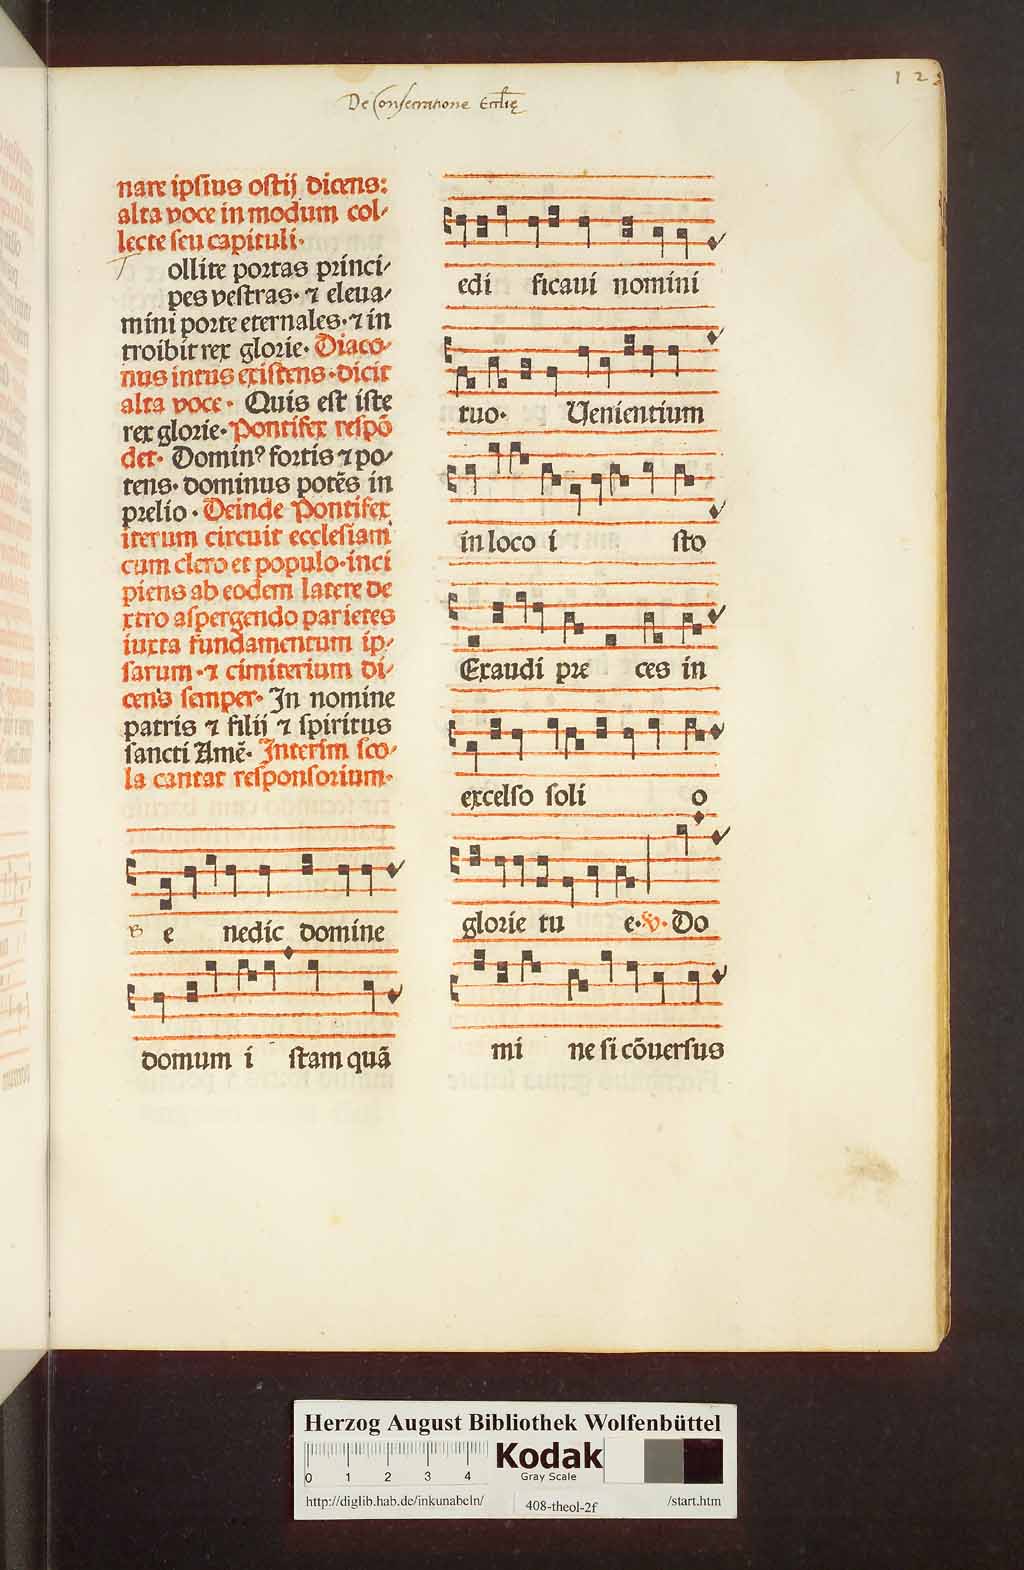 De Consecratione Eccl̄ię
nare ipsius ostij dicens:
alta voce in modum col⸗
lecte seu capituli.
Tollite portas princi⸗
pes vestras. ⁊ eleua⸗
mini porte eternales. ⁊ in
troibit rex glorie. Diaco⸗
nus intus existens. dicit
alta voce. Quis est iste
rex glorie. Pontifex respō
det. Dominꝰ fortis ⁊ po⸗
tens. dominus potēs in
prelio. Deinde Pontifex
iterum circuit ecclesiam
cum clero et populo. inci
piens ab eodem latere de
xtro aspergendo parietes
iuxta fundamentum ip⸗
sarum. ⁊ cimiterium di⸗
cens semper. In nomine
patris ⁊ filij ⁊ spiritus
sancti Amē. Interim sco⸗
la cantat responsorium.
B e nedic domine
domum i stam quā
edi ficaui nomini
tuo. Uenientium
in loco i sto
Exaudi pre ces in
excelso soli o
glorie tu e. ℣. Do
mi ne si cōuersus
Herzog August Bibliothek Wolfenbüttel
0 1 2 3 4
Kodak
Gray Scale
http://diglib.hab.de/inkunabeln/ 408-theol-2f /start.htm